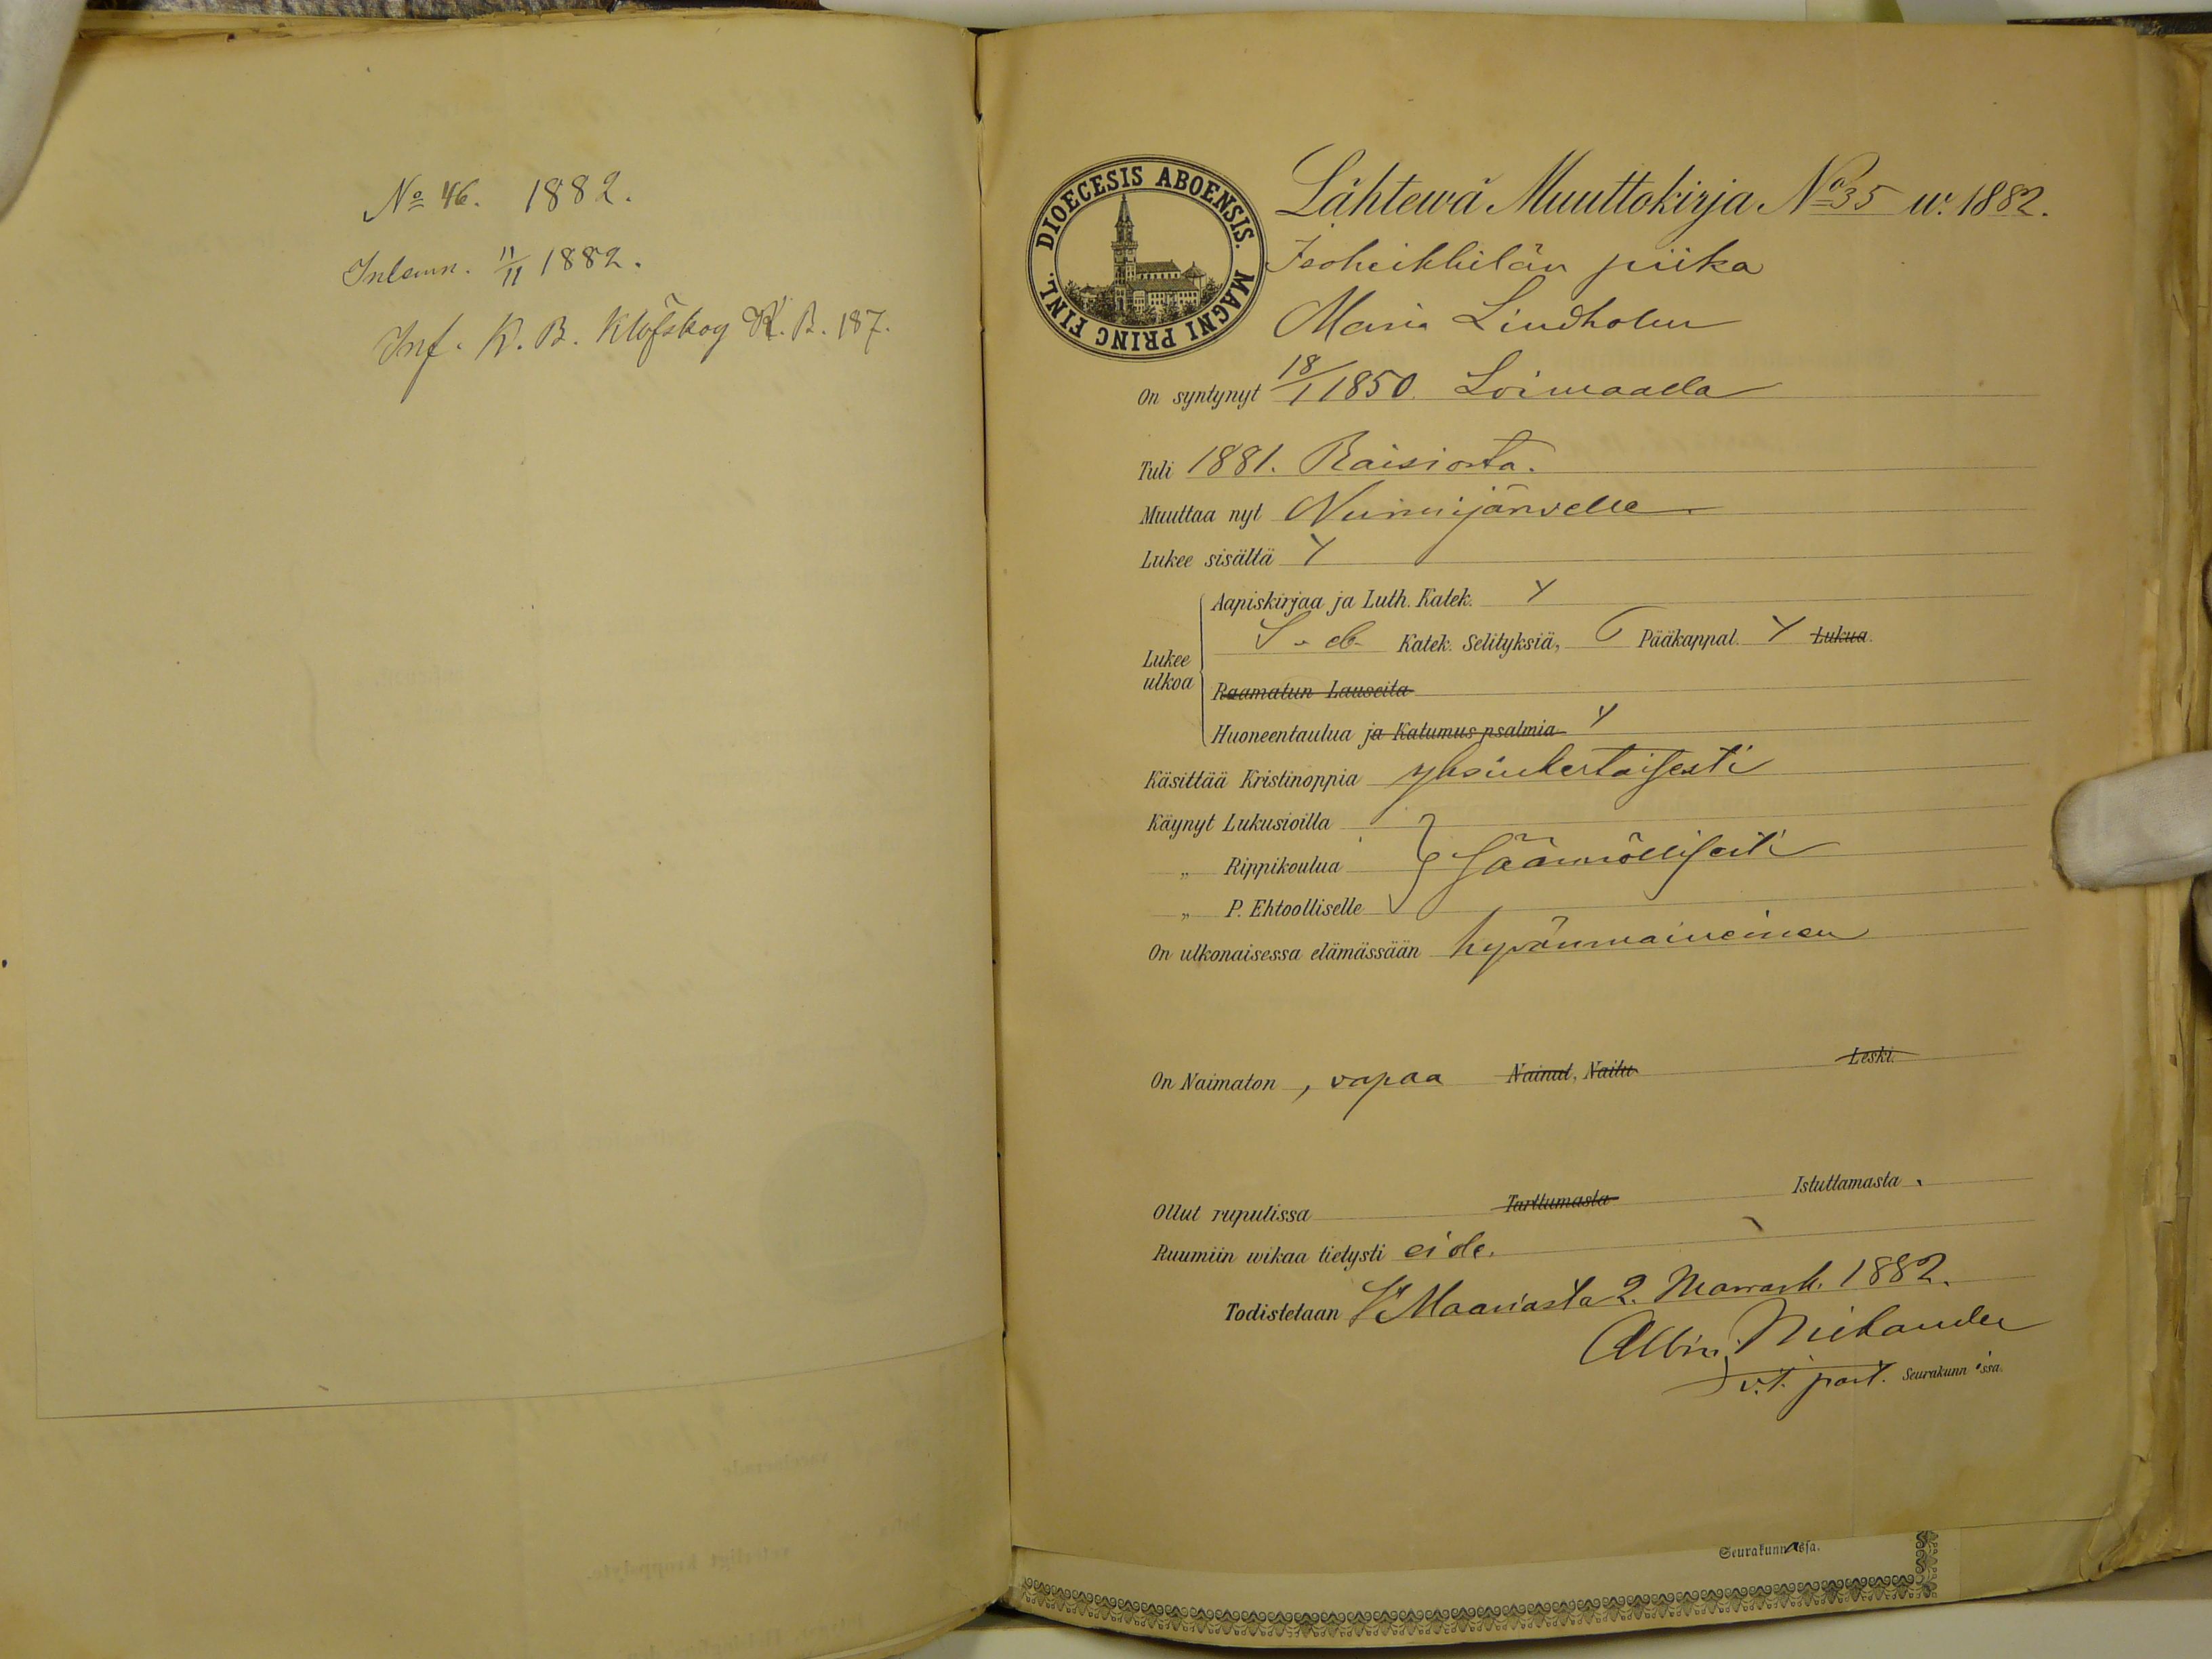 No 46. 1882.
Inlemn. 11/11 1882.
Inf. K. B. Klöfskog K. B. 187.
DIOECESIS ABOENSIS. MAGNI PRINC FINL.
Lähtewä Muuttokirja No 35 w. 1882.
Isoheikkilän piika
Maria Lindholm
On syntynyt 18/1 1850. Loimaalla
Tuli 1881. Raisiosta.
Muuttaa nyt Nummijärvelle
Lukee sisältä Y
Lukee ulkoa
Aapiskirjaa ja Luth. Katek. Y
Katek. Selityksiä, Pääkappal. Y Lukua.
Raamatun Lauseita
Huoneentaulua ja Katumus psalmia Y
Käsittää Kristinoppia yksinkertaisesti
Käynyt Lukusioilla
„ Rippikoulua säännöllisesti
„ P. Ehtoolliselle
On ulkonaisessa elämässään hyvänmaineinen
On Naimaton, vapaa Nainut, Naitu Leski.
Ollut rupulissa Tarttumasta Istuttamasta
Ruumiin wikaa tietysti ei ole.
Todistetaan St Maariasta 2. Marrask. 1882.
Albin Nielander
v.t. past. Seurakunn ssa.
Seurakunn ssa.